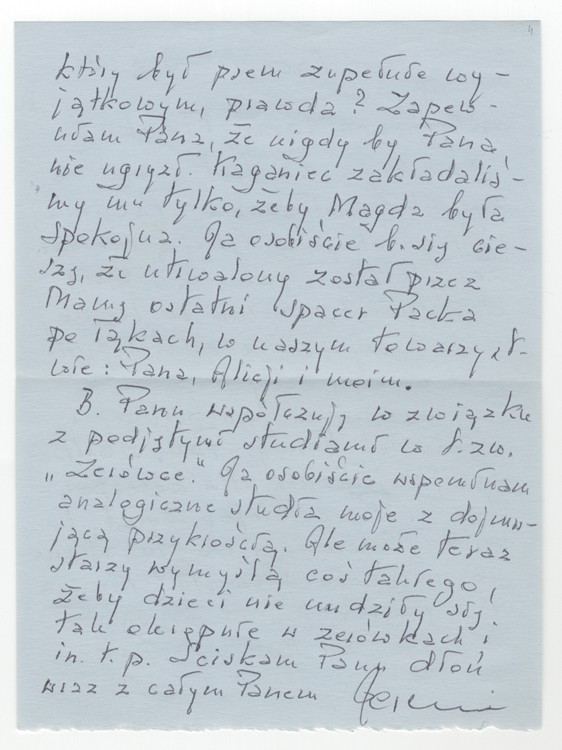 4
który był psem zupełnie wy-
jątkowym, prawda? Zapew-
niam Pana, że nigdy by Pana
nie ugryzł. Kaganiec zakładaliś-
my mu tylko, żeby Magda była
spokojna. Ja osobiście b. się cie-
szę, że utrwalony został przez
Mamę ostatni spacer Packa
po łąkach, w naszym towarzyst-
wie: Pana, Alicji i moim.
B. Panu współczuję w związku
z podjętymi studiami w t.zw.
„Zerówce." Ja osobiście wspominam
analogiczne studia moje z dojmu-
jącą przykrością. Ale może teraz
starzy wymyślą coś takiego,
żeby dzieci nie nudziły się
tak okropnie w zerówkach i
in. t.p. Ściskam Pana dłoń
wraz z całym Panem